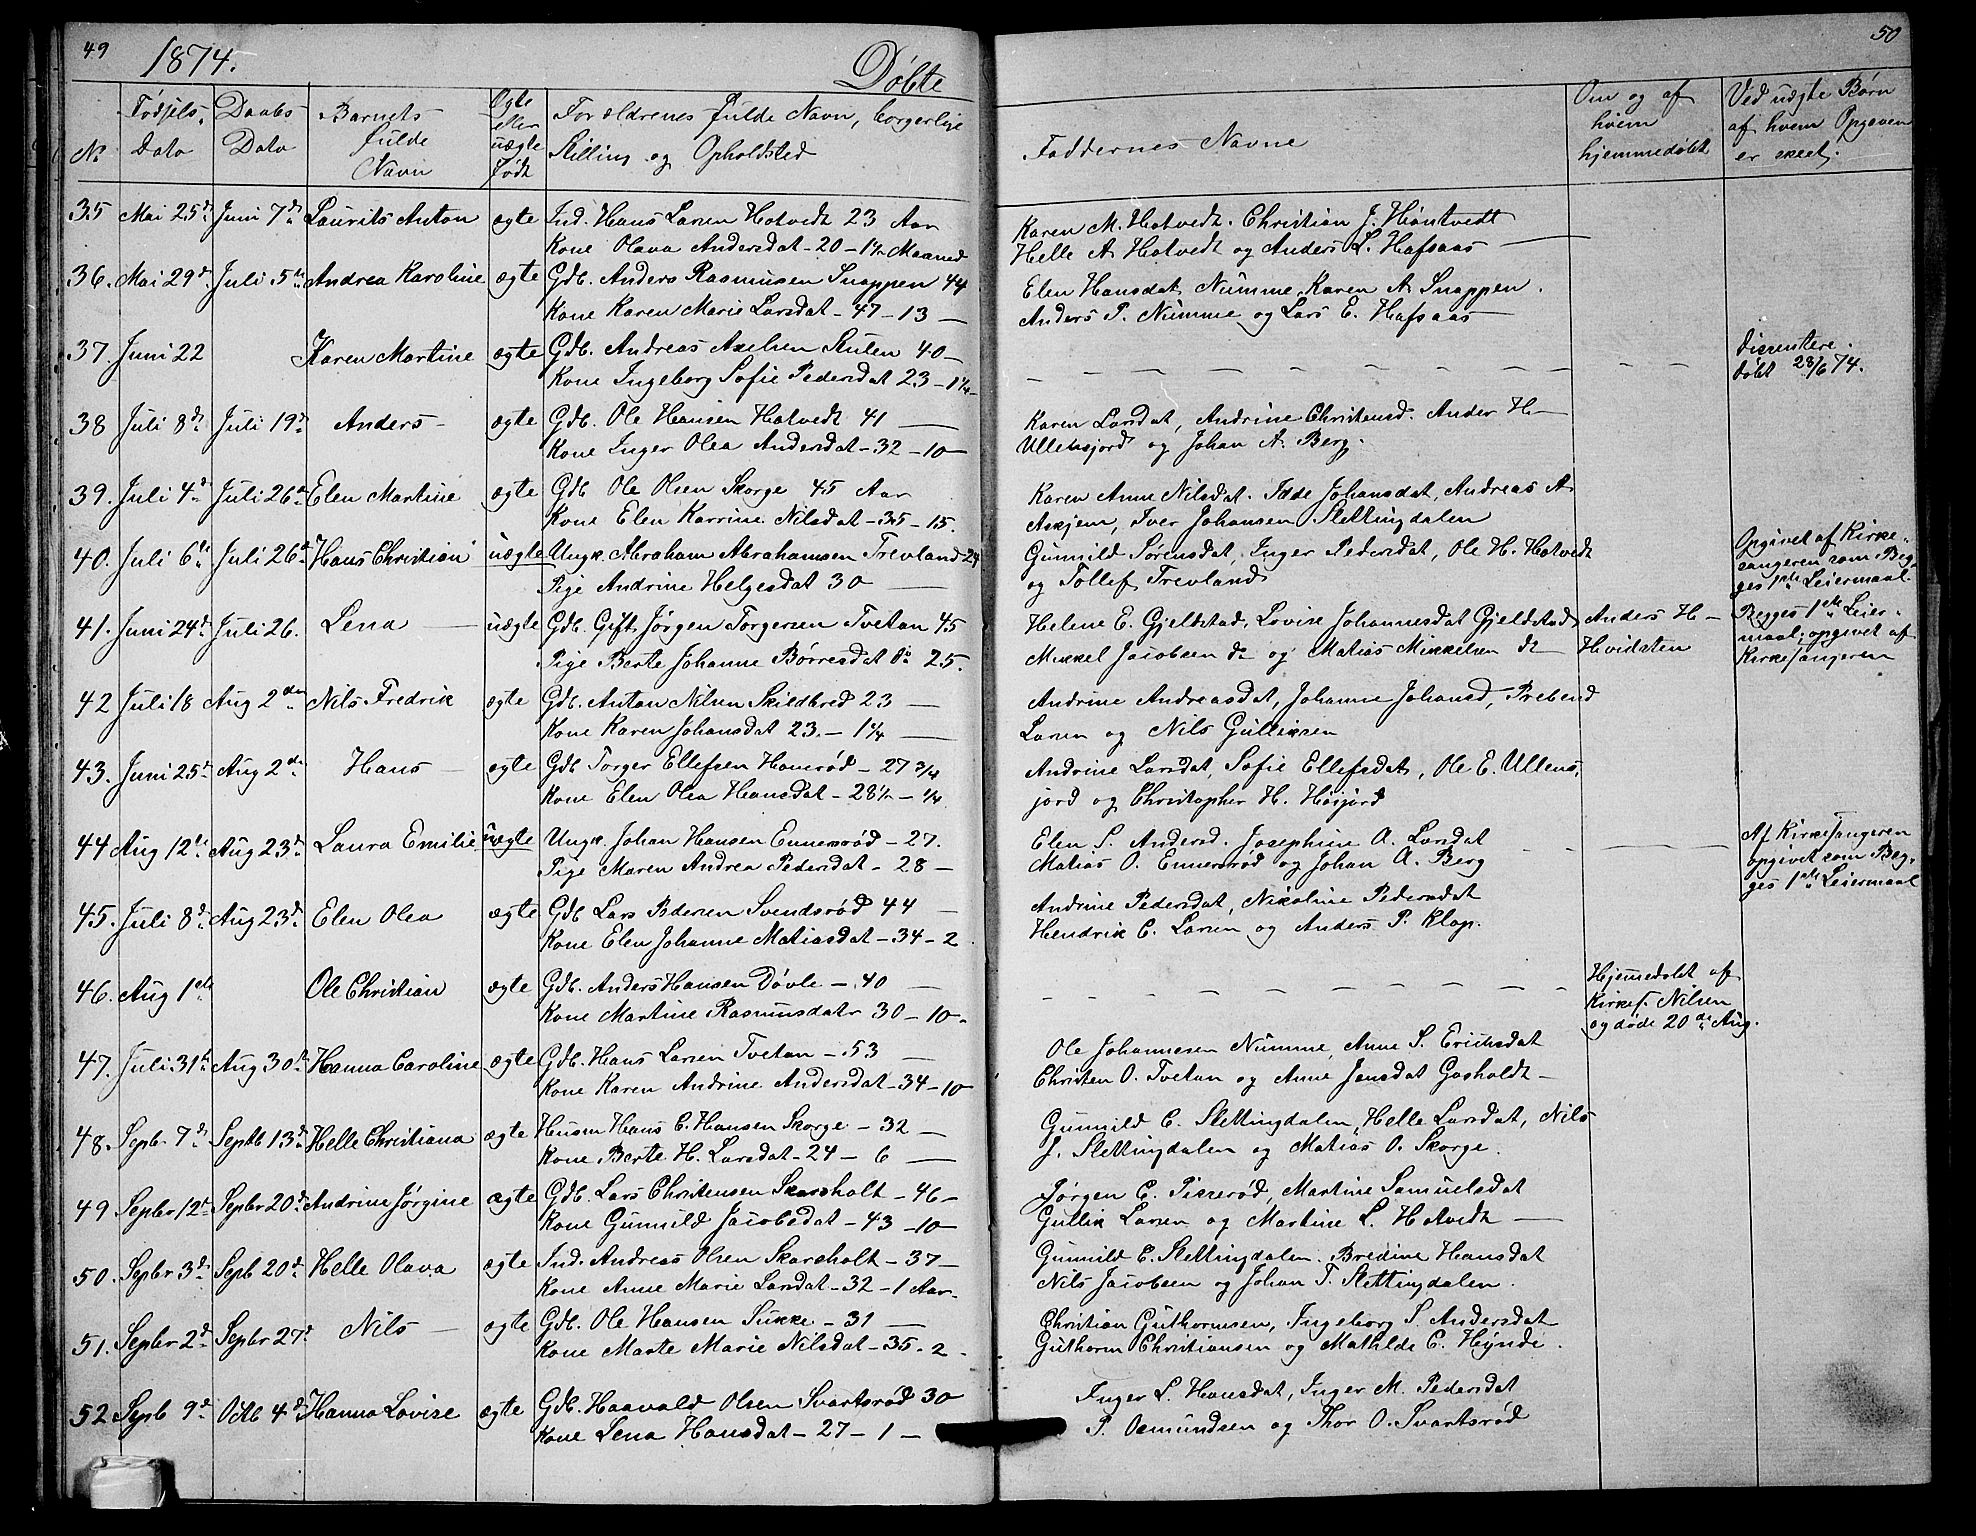 49
1874.
Døbte
50
No
Fødsels Dato
Daabs Dato
Barnets fulde Navn
Ægte eller uægte født
Forældrenes fulde Navn, borgerlige
Stilling og Opholdsted
Faddernes Navne
Om og af hvem hjemmedøbt
Ved uægte Børn af hvem Opgaven er skeet.
35 Mai 25de Juni 7de Laurits Anton ægte Ind. Hans Larsen Hotvedt 23 Aar Karen M. Hotvedt. Christian J. Høntvedt
Kone Olava Andersdat - 20 - 1½ Maaned Helle A. Hotvedt og Anders L. Hafsaas
36. Mai 29de Juli 5te Andrea Karoline ægte Gdb. Anders Rasmussen Snappen 44 Elen Hansdat Numme, Karen A. Snappen.
Kone Karen Marie Larsdat - 47 - 13 Anders P. Numme og Lars E. Hafsaas
37. Juni 22 Karen Martine ægte Gdb. Andreas Axelsen Stulen 40 Dissentere.
Kone Ingeborg Sofie Pedersdat 23 - 1¼ Døbt 28/6 74.
38 Juli 8de Juli 19de Anders ægte Gdb. Ole Hansen Hotvedt 41 Karen Larsdat, Andrine Christensd. Ander H.
Kone Inger Olea Andersdat - 32 - 10 Ullensjord og Johan A. Berg.
39. Juli 4de Juli 26de Elen Martine ægte Gdb. Ole Olsen Skorge 45 Aar Karen Anne Nilsdat. Tæde Johansdat, Andreas A.
Kone Elen Karrine Nilsdat - 35 - 15. Askjem, Iver Johansen Slettingdalen
40. Juli 6te Juli 26de Hans Christian uægte Ungk. Abraham Abrahamsen Trevland 24 Gunnild Sørensdat, Inger Pedersdat, Ole H. Hotvedt Opgivet af Kirke-
Pige Andrine Helgesdat 30 og Tollef Trevland sangeren som Beg-
ges 1ste Leiermaal.
41. Juni 24de Juli 26. Lena uægte Gdb. Gift Jørgen Torgersen Tvetan 45 Helene E. Gjelstad, Lovise Johannesdat Gjelstad Anders H. Begges 1ste Leier-
Pige Berte Johanne Børresdat do 25. Mikkel Jacobsen do og Matias Mikkelsen do Hvidsten maal; opgivet af
Kirkesangeren
42 Juli 18 Aug 2den Nils Fredrik ægte Gdb. Anton Nilsen Skildbred 23 Andrine Andreasdat, Johanne Johansd, Prebend
Kone Karen Johansdat 23. - 1¼ Larsen og Nils Gulliksen
43. Juni 25de Aug 2den Hans ægte Gdb Torger Ellefsen Hamrød - 27¾ Andrine Larsdat, Sofie Ellefsdat, Ole E. Ullens,
Kone Elen Olea Hansdat - 28½ - ¼ jord og Christopher H. Høijord
44 Aug 12te Aug 23de Laura Emilie uægte Ungk. Johan Hansen Ennersrød - 27. Elen S. Andersd. Josephine A. Larsdat Af Kirkesangeren
Pige Maren Andrea Pedersdat - 28 Matias O. Ennersrød og Johan A. Berg opgivet som Beg-
ges 1ste Leiermaal
45. Juli 8de Aug 23de Elen Olea ægte Gdb Lars Pedersen Svendsrød 44 Andrine Pedersdat, Nikoline Pedersdat
Kone Elen Johanne Matiasdat - 34 - 2 Hendrik C. Larsen og Anders P. Klop.
46. Aug 1ste Ole Christian ægte Gdb. Anders Hansen Døvle - 40 Hjemedøbt af
Kone Martine Rasmusdatr 30 - 10. Kirkes. Nilsen
og døde 20de Aug.
47. Juli 31te Aug 30te Hanna Caroline ægte Gdb. Hans Larsen Tvetan - 53 Ole Johannesen Numme, Anne S. Erichsdat
Kone Karen Andrine Andersdat - 34 - 10 Christen O. Tvetan og Anne Jansdat Gasholdt
48. Sepb. 7de Septb 13de Helle Christiana ægte Husm Hans C. Hansen Skorge - 32 Gunnild C. Slettingdalen, Helle Larsdat, Nils
Kone Berte H. Larsdat - 24 - 6 J. Slettingdalen og Matias O. Skorge.
49 Sepbr 12te Sepbr 20de Andrine Jørgine ægte Gdb. Lars Christensen Skarsholt - 46 Jørgen C. Pisserød, Martine Samuelsdat
Kone Gunnild Jacobsdat - 43 - 10 Gullik Larsen og Martine L. Hotvedt
50. Sepbr 3de Sepb 20de Helle Olava ægte Ind. Andreas Olsen Skarsholt - 37 Gunnild E. Slettingdalen. Bredine Hansdat
Kone Anne Marie Larsdat - 32 - 1 Aar. Nils Jacobsen og Johan T. Slettingdalen.
51. Sepbr 2de Sepbr 27de Nils ægte Gdb. Ole Hansen Sukke - 31 Christian Guthormsen, Ingeborg S. Andersdat
Kone Marte Marie Nilsdat - 35 - 2. Guthorm Christiansen og Mathilde C. Hynde.
52 Sepb 9de Octb 4de Hanna Lovise ægte Gdb. Haavald Olsen Svartsrød 30 Inger L. Hansdat, Inger M. Pedersdat
Kone Lena Hansdat - 27 - 1 P. Osmundsen og Thor O. Svartsrød